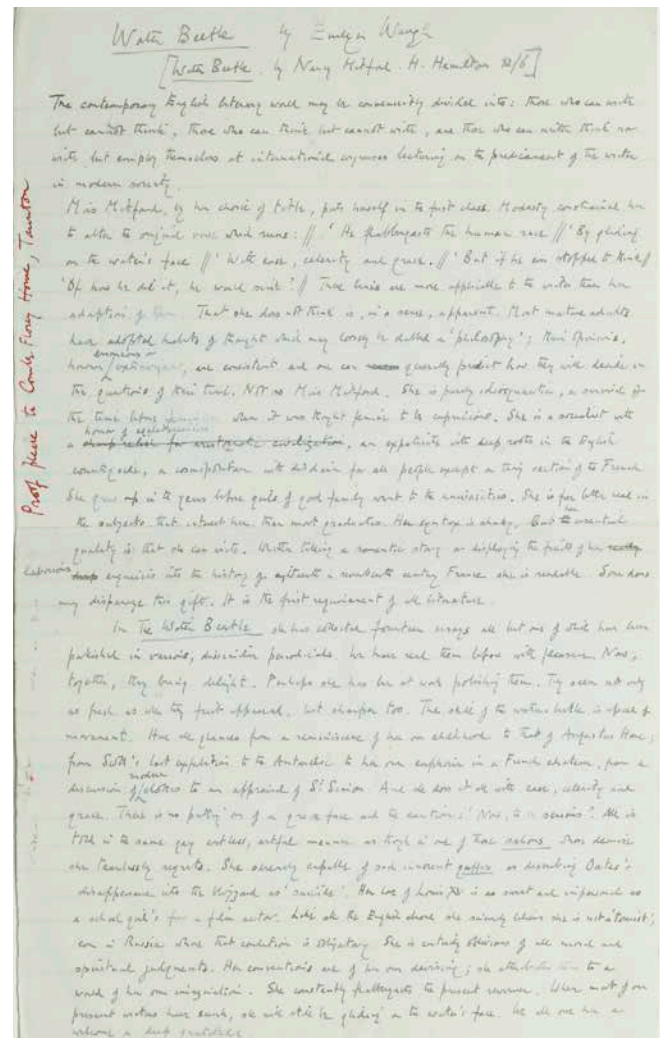 Water Beetle by Evelyn Waugh
[Water Beetle. by Nancy Mitford. H. Hamilton 12/6]
The contemporary English literary world may be conveniently divided into: those who can write
but cannot think, those who can think but cannot write, and those who can neither think nor
write but employ themselves at international congresses lecturing on the predicament of the writer
in modern society.
Miss Mitford, by her choice of title, puts herself in the first class. Modesty constrained her
to alter the original verse which runs: // 'He flabbergasts the human race // By gliding
on the water's face // With ease, celerity and grace. // But if he ever stopped to think //
'Of how he did it, he would sink'. // These lines are more applicable to the writer than her
adaption of them. That she does not think is, in a sense, apparent. Most mature adults
have adopted habits of thought which may loosely be dubbed a 'philosophy'; their opinions,
however extravagant, are consistent and one can generally predict how they will decide on
the questions of their time. Not so Miss Mitford. She is purely idiosyncratic, a survival of
the time when it was thought feminine to be capricious. She is a socialist with
a an expatriate with deep roots in the English
countryside, a cosmopolitan with disdain for all people except a tiny section of the French
She grew up in the years before girls of good family went to the universities. She is far better read in
the subjects that interest her, than most graduates. Her syntax is shaky. But her essential
quality is that she can write. Whether telling a romantic story or displaying the fruits of her
laborious enquiries into the history of eighteenth century France she is readable. Some dons
may disparage this gift. It is the first requirement of all literature.
In The Water Beetle she has collected fourteen essays all but one of which have been
published in various, dissimilar periodicals. We have read them before with pleasure. Now,
together, they bring delight. Perhaps she has been at work polishing them. They seem not only
as fresh as when they first appeared, but sharper too. The skill of the water beetle is speed of
movement. How she glances from a reminiscence of her own childhood to that of Augustus Hare;
from Scott's last expedition to the Antarctic to her own euphoria in a French chateau, from a
discussion of modern clothes to an appraisal of St Simon. And she does it all with ease, celerity and
grace. There is no putting on of a grave face and the caution: 'Now, to be serious'. All is
told in the same gay artless, artful manner as though in one of those salons whose demise
she tearlessly regrets. She is capable of such innocent gaffes as describing Oates's
disappearance into the blizzard as 'suicide'. Her love of Louis XV is as sweet and impersonal as
a school girl's for a film actor. Like all the English abroad she sincerely believes she is not a 'tourist',
even in Russia where that condition is obligatory. She is entirely oblivious of all moral and
spiritual judgments. Her conventions are of her own devising; she attributes them to a
world of her own imagination. She constantly flabbergasts the present reviewer. When most of our
present writers have sunk, she will still be gliding on the water's face. We all owe her a
welcome a deep gratitude.
Proof please to Combe Florey House, Taunton